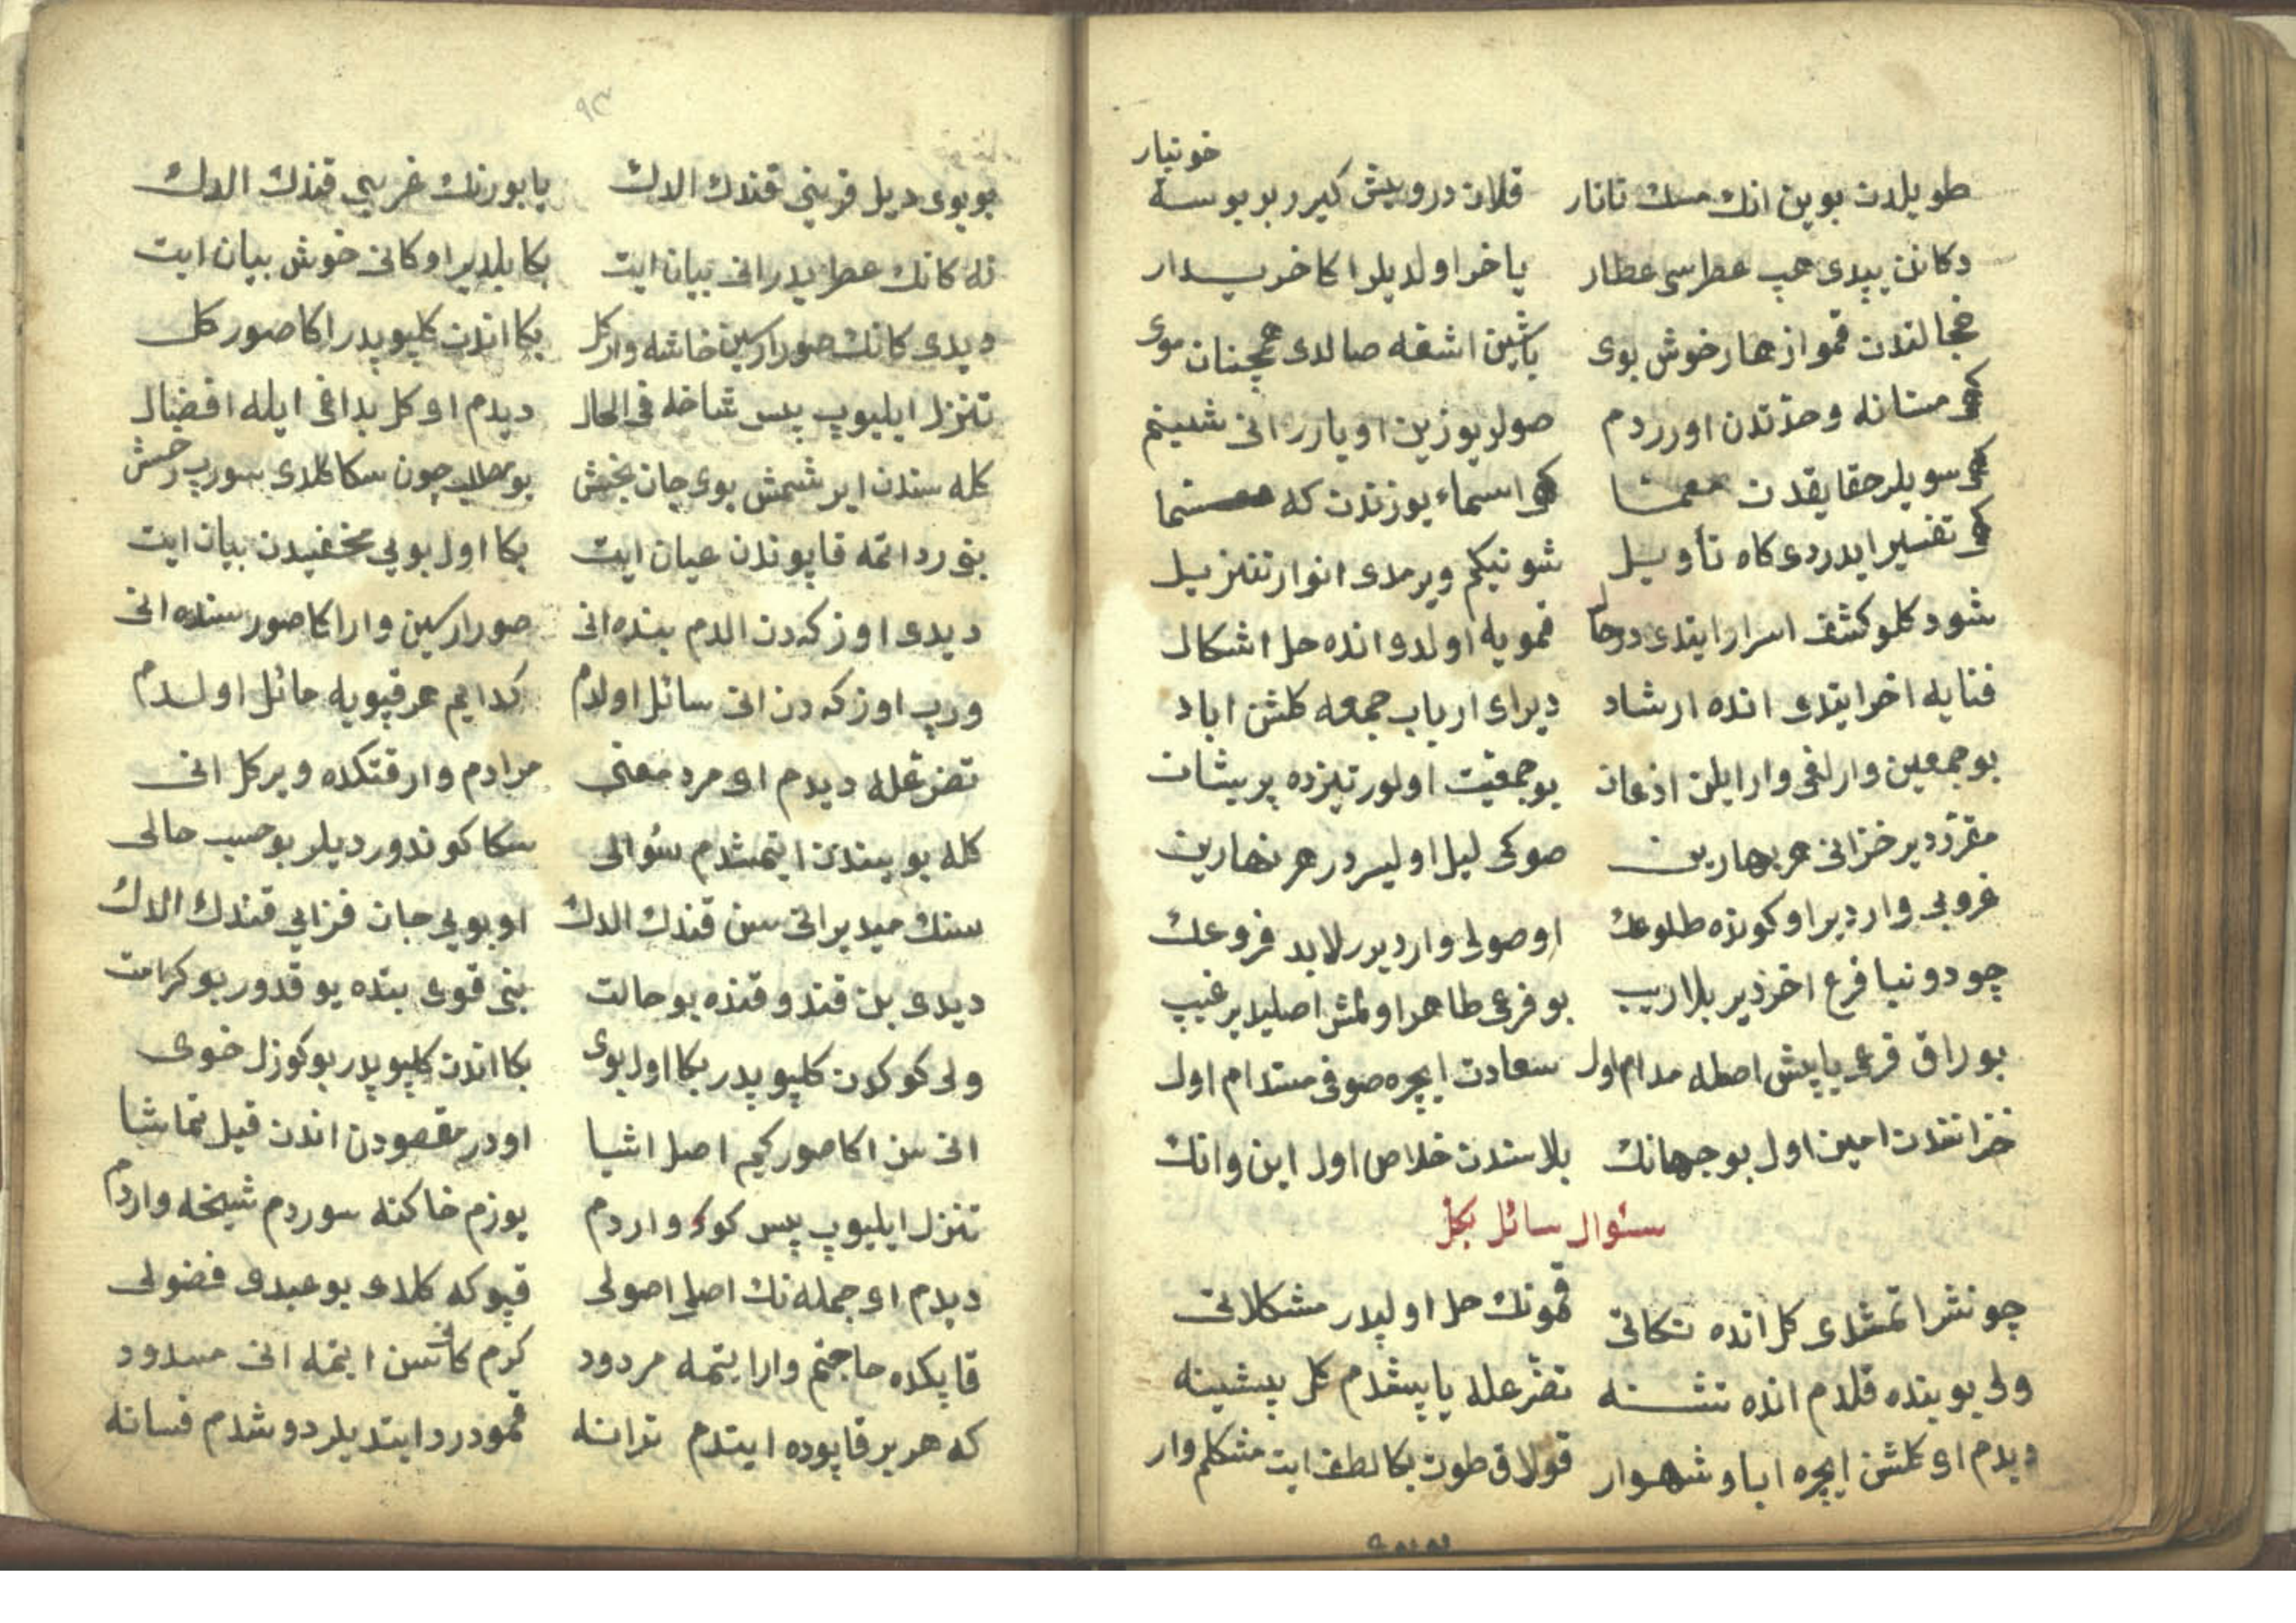 خونبار
طویلدن بوین انك مسك تاتار قلان درویش كیرر بر بوسه
دكانن ییدی هپ عطرسی عطار یا خر اولدیلر اكا خریدار
خجالتدن قمو ازهار خوش بوی باشین اشغه صالدی همچنان موی
كهی مستانه وحدتدن اورر دم صولر یوزین اویارر انی شبنم
كهی سویلر حقایقدن معما كهی اسماء یوزندن كه مسما
كهی تفسیر ایدردی كاه تأویل شو نیكم ویرمدی انوار تنزیل
شود كلو كشف اسرار ایتدی درحال قمویه اولدی انده حل اشكال
فنایه اخر ایتدی انده ارشاد دیر ای ارباب جمعه كلشن اباد
بو جمعین وارلغی وار ایلن اذعان بو جمعیت اولور تیزده پریشان
مقرردیر خزانی هر بهارین صوكی لیل اولیسردر هر نهارین
غروبی واردیر او كونده طلوعك اوصولی واردیرر لابد فروعك
چو دونیا فرع اخردیر بلا ریب بو فرعی ظاهر اولمش اصلیدیر غیب
بوراق فرعی یاپیش اصله مدام اول سعادت ایچره صوفی مستدام اول
خزانندن امین اول بو جهانك بلاسندن خلاص اول این وانك
سئوال سائل بكل
چو نشر اتمشدی كل انده نكاتی قمونك حل اولیدر مشكلاتی
ولی بو بنده قلدم انده تشنه تضرعله یاپیشدم كل پیشینه
دیدم ای كلشن ایچره اباد شهوار قولاق طوت بكا لطف ایت مشكلم وار
بو بوی
٩٣
بو بوی دیل فریبی قندك الدك یا بو رنك غریبی قندك الدك
نه كانك عطریدر انی بیان ایت بكا بلدیر او كانی خوش بیان ایت
دیدی كانك صورارسین خاشه وار كل بكا اندن كلیویدر اكا صور كل
تنزل ایلیوب پس شاخله فی الحال دیدم او كل بداغی ایله افضال
كله سندن ایرشمش بوی جان بخش بو مطلب چون سكا كلدی سورب رخش
بنی رد اتمه قاپوندن عیان ایت بكا اول بویی مخفیدن بیان ایت
دیدی اوزكه دن الدم بنده انی صورارسین وار اكا صور سنده انی
ورب اوزكه دن انی سائل اولدم كدایم هر قپویه مائل اولدم
تضرعله دیدم ای مرد معنی مرادم وار قتكده ویر كل انی
كله بو بیندن ایتمشدم سؤالی سكا كوندوردیلر بو حسب حالی
سنك میدیر انی سن قندك الدك او بویی جان فزایی قندك الدك
دیدی بن قندو قنده بو حالت بنی قوی بنده یوقدور بو كرامت
ولی كوكدن كلیویدر بكا اول بوی بكا اندن كلیویدر بو كوزل خوی
انی سن اكا صور كیم اصل اشیا اودر مقصودن اندن قیل تماشا
تنزل ایلیوب پس كوكه واردم یوزم خاكنه سوردم شیخه واردم
دیدم ای جمله نك اصلی اصولی قپوكه كلدی بو عبدی فضولی
قاپكده حاجتم وار ایتمه مردود كرم كانسن ایتمه انی مسدود
كه هر بر قاپوده ایتدم ترانه قمودر رد ایتدیلر دوشدم فسانه